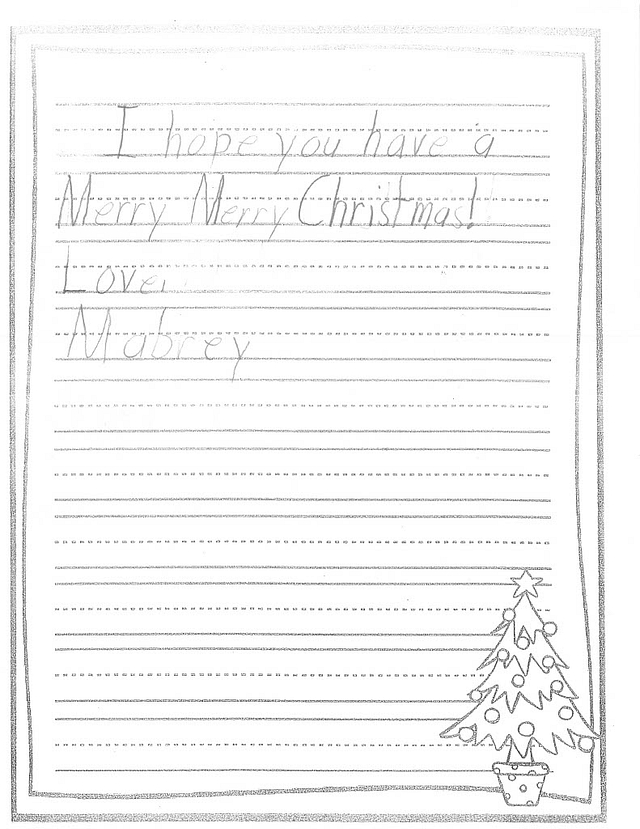 I hope you have a
Merry Merry Christmas!
Love,
Mabrey